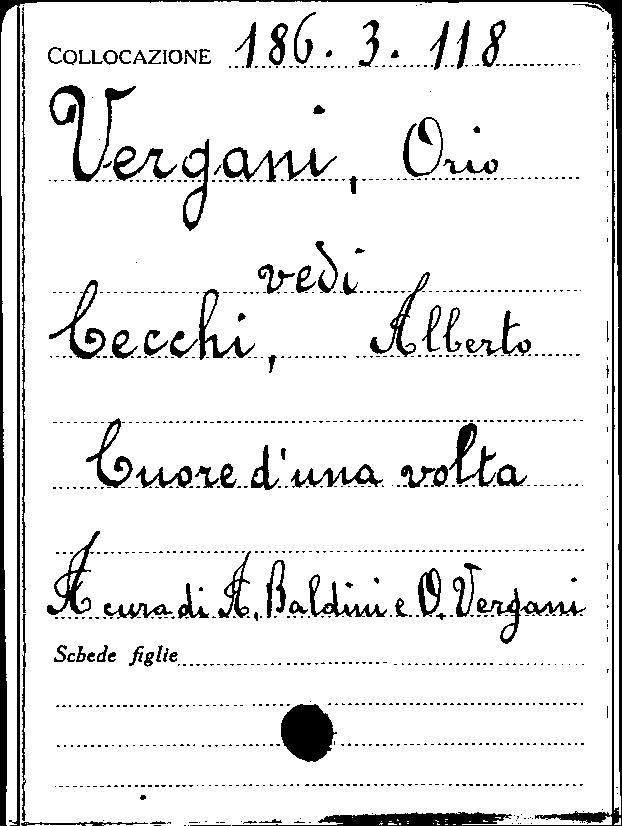 COLLOCAZIONE 186. 3. 118
Vergani, Orio
vedi
Cecchi, Alberto
Cuore d'una volta
A cura di A. Baldini e O. Vergani
Schede figlie